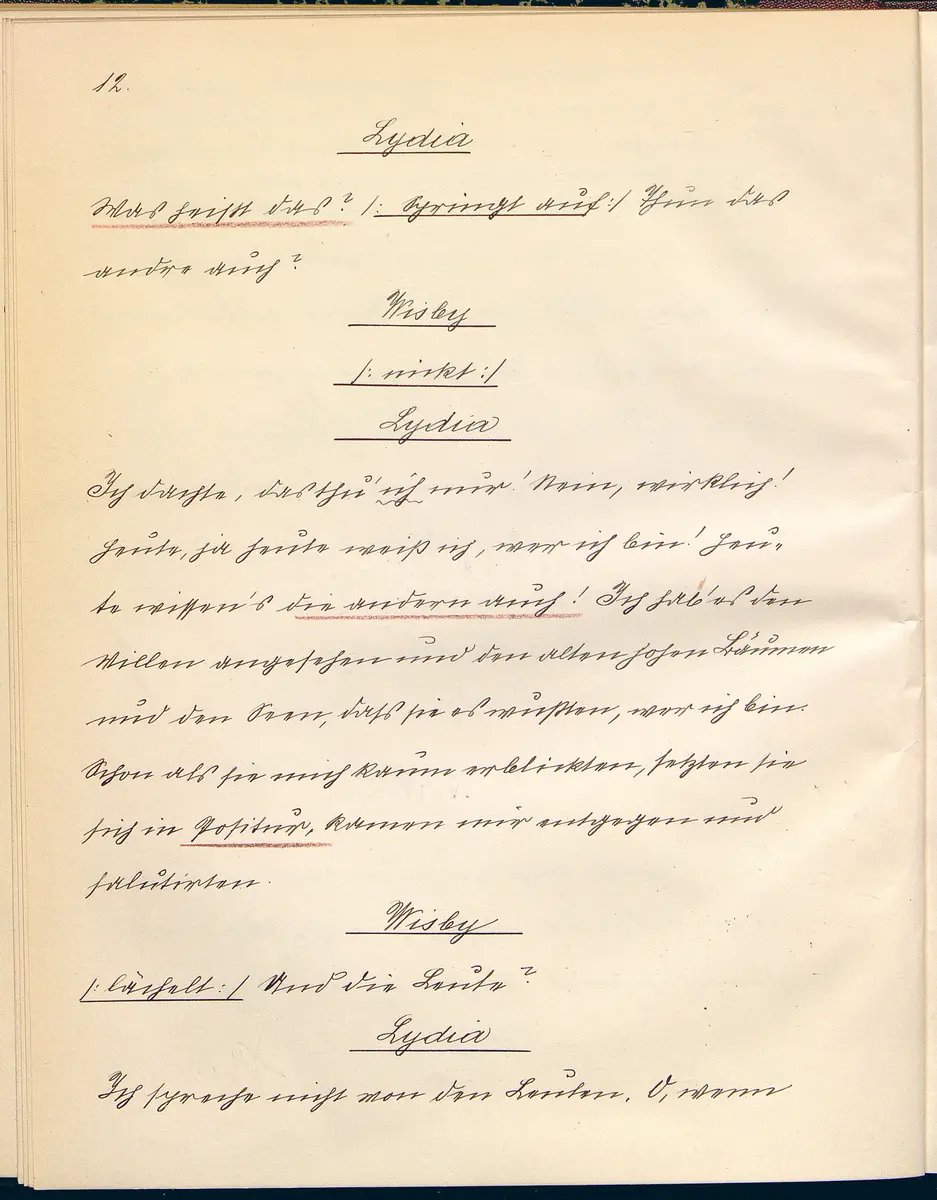 12.
Lydia
Was heißt das? /: Springt auf :/ Thun das
andre auch?
Wisby
/: nickt :/
Lydia
Ich dachte, das thu' ich nur! Nein, wirklich!
Heute, ja heute weiß ich, wer ich bin! Heu-
te wissen's die andern auch! Ich hab' es den
Villen angesehen und den alten hohen Bäumen
und den Seen, daß sie es wußten, wer ich bin.
Schon als sie mich kaum erblickten, setzten sie
sich in Positur, kamen mir entgegen und
salutirten.
Wisby
/: lächelt :/ Und die Leute?
Lydia
Ich spreche nicht von den Leuten. O, wenn